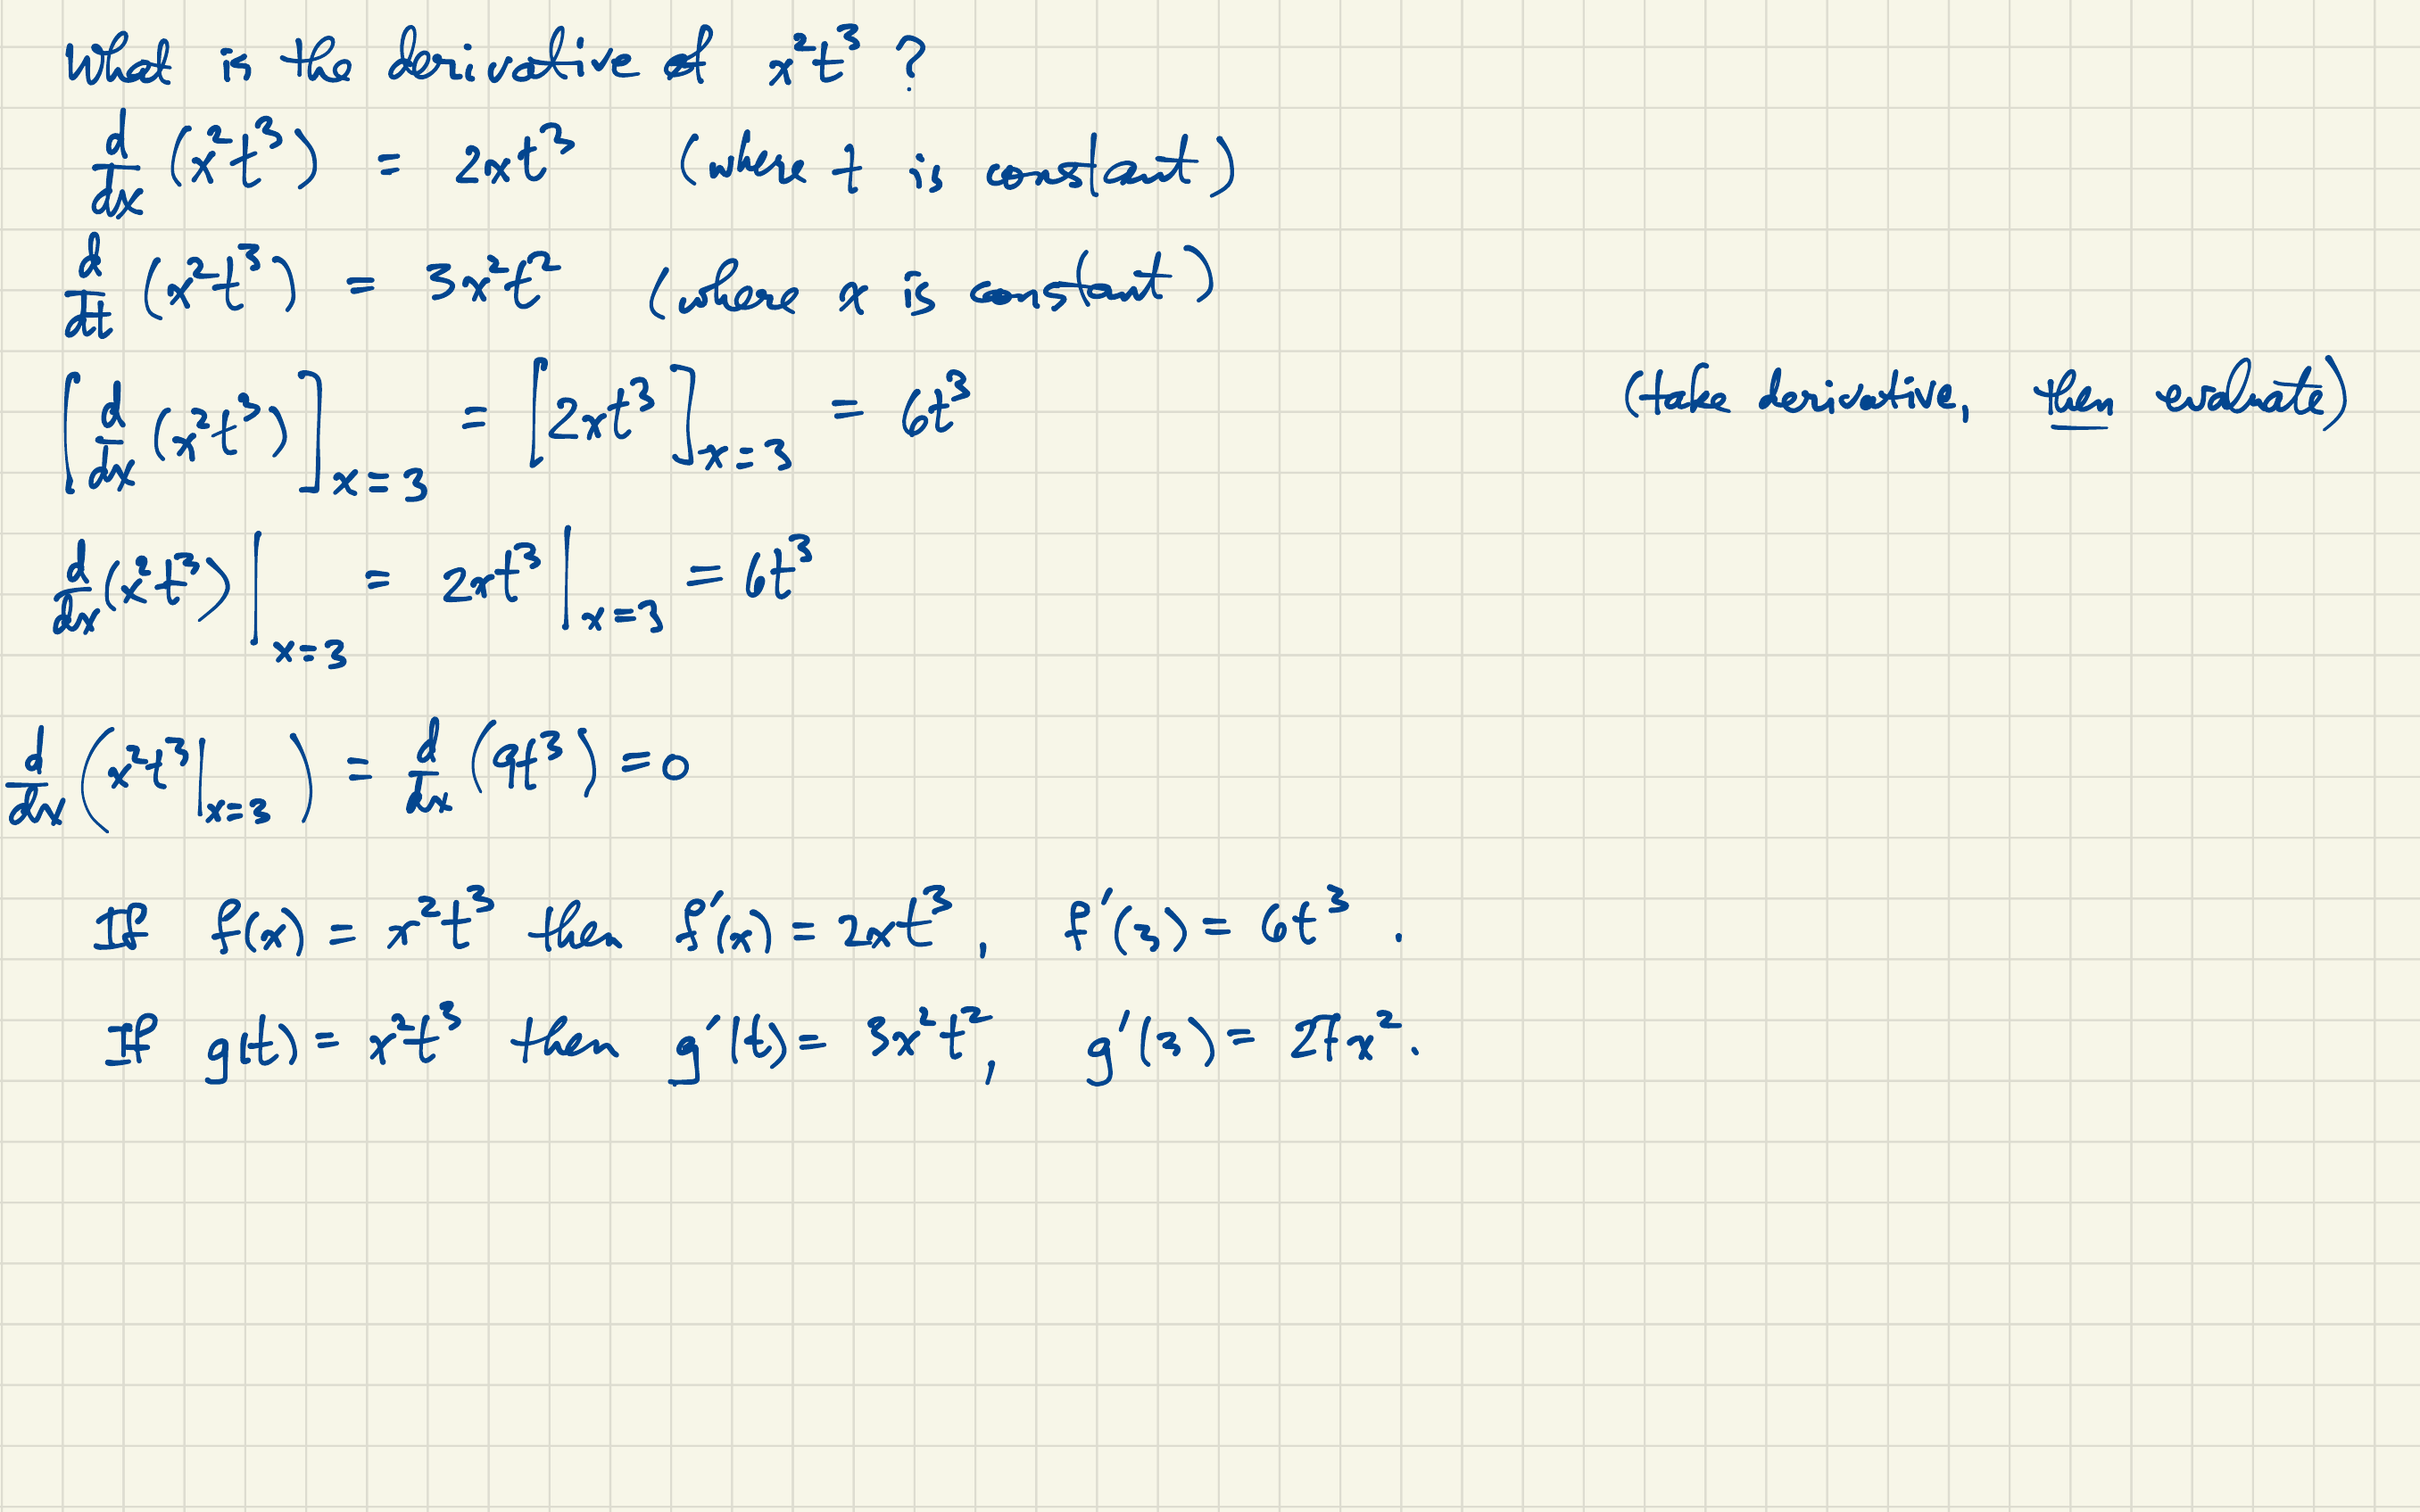 What is the derivative of x²t³ ?
d/dx (x²t³) = 2xt³ (where t is constant)
d/dt (x²t³) = 3x²t² (where x is constant)
[d/dx (x²t³)]_{x=3} = [2xt³]_{x=3} = 6t³ (take derivative, then evaluate)
d/dx (x²t³)|_{x=3} = 2xt³|_{x=3} = 6t³
d/dx (x²t³|_{x=3}) = d/dx (9t³) = 0
If f(x) = x²t³ then f'(x) = 2xt³, f'(3) = 6t³.
If g(t) = x²t³ then g'(t) = 3x²t², g'(3) = 27x².